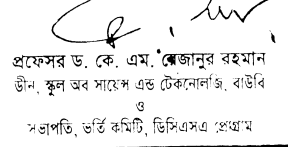 প্রফেসর ড. কে. এম. রেজানুর রহমান
ডীন, স্কুল অব সায়েন্স এন্ড টেকনোলজি, বাউবি
ও
সভাপতি, ভর্তি কমিটি, ডিসিএসএ প্রোগ্রাম